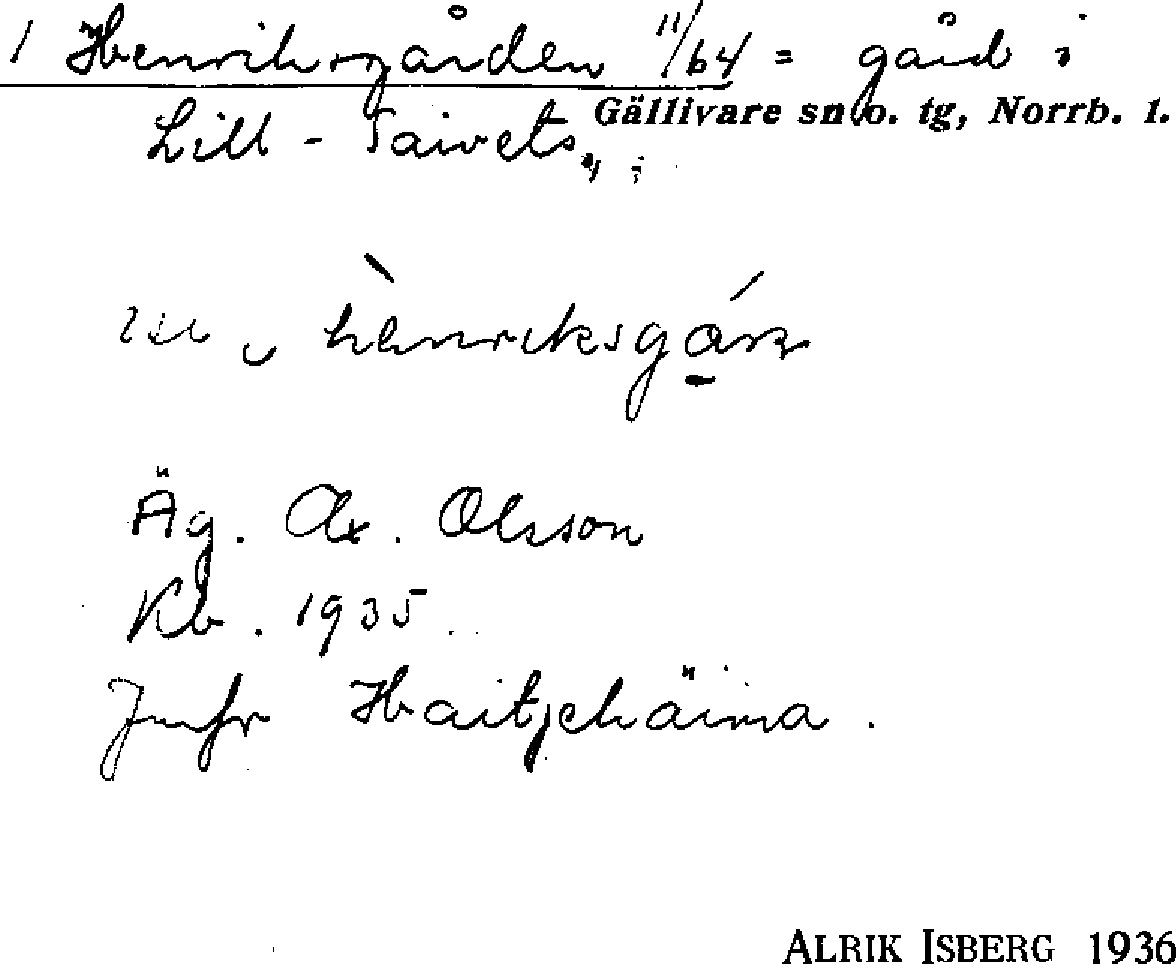 1 Henriksgården 11/64 = gård i
Gällivare sn o. tg, Norrb. l.
Lill-Taivets,
henriksgáṛṇ
Äg. Ax. Olsson
Kb. 1935.
Jmfr Haitjehäima.
ALRIK ISBERG 1936